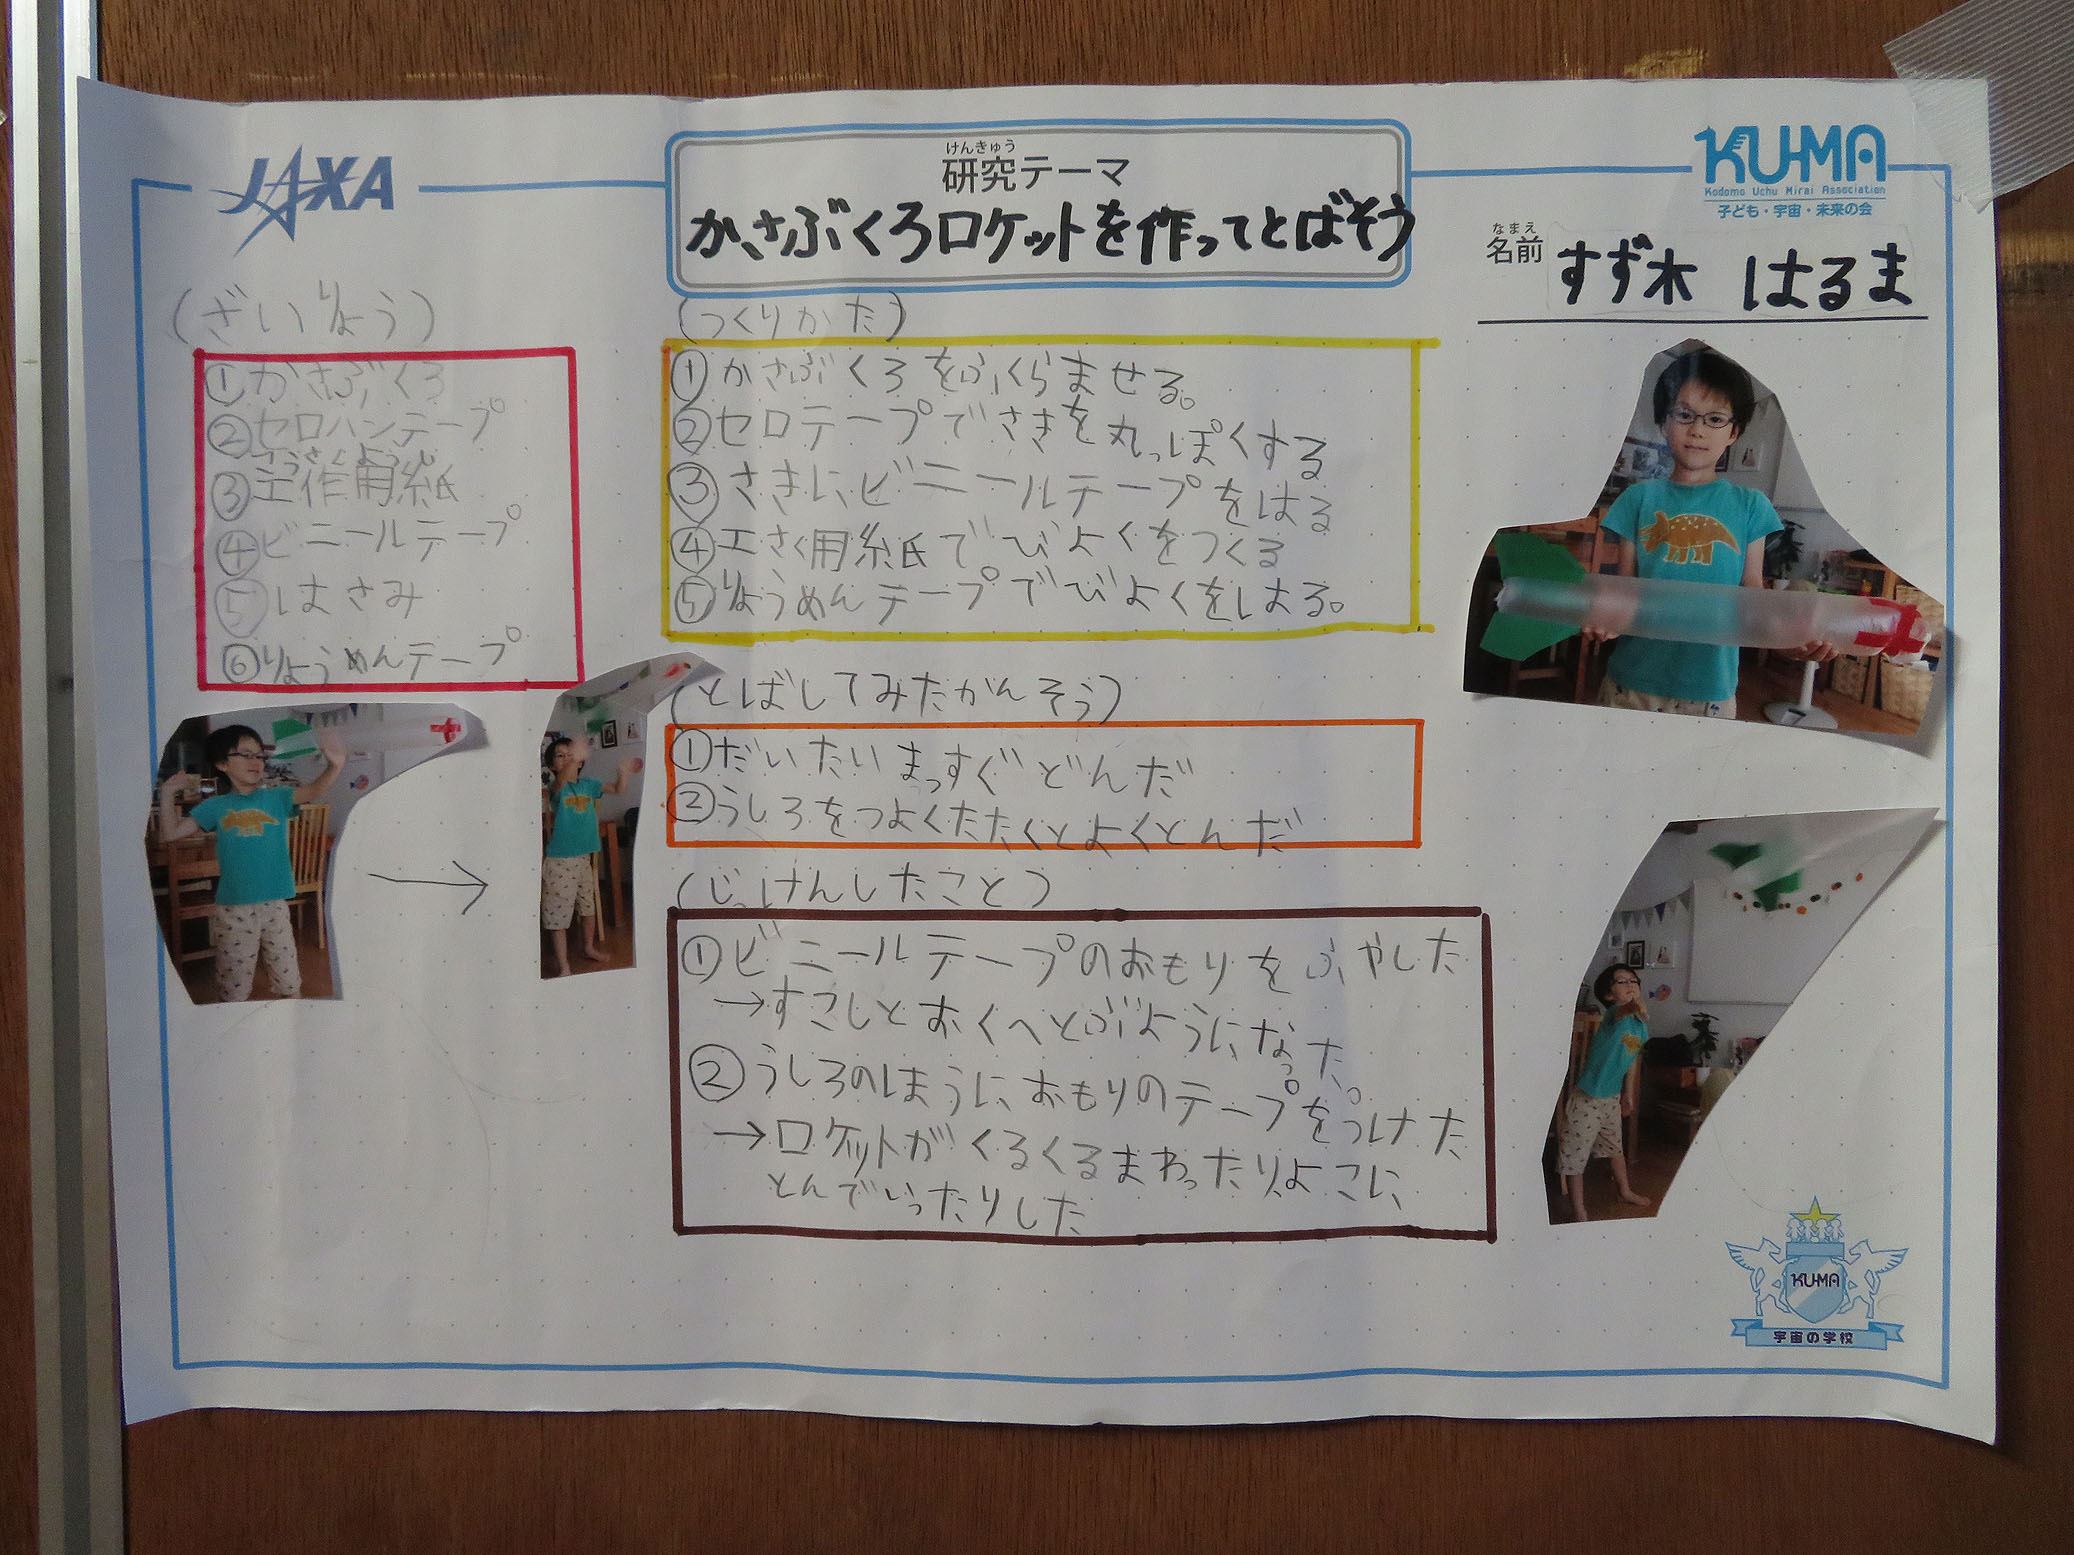 JAXA
けんきゅう
研究テーマ
かさぶくろロケットを作ってとばそう
KUMA
Kodomo Uchu Mirai Association
子ども・宇宙・未来の会
なまえ
名前 すず木 はるま
(ざいりょう)
①かさぶくろ
②セロハンテープ
こうさくようし
③工作用紙
④ビニールテープ
⑤はさみ
⑥りょうめんテープ
(つくりかた)
①かさぶくろをふくらませる。
②セロテープでさきを丸っぽくする
③さきにビニールテープをはる
④工さく用紙でびよくをつくる
⑤りょうめんテープでびよくをはる。
(とばしてみたかんそう)
①だいたいまっすぐどんだ
②うしろをつよくたたくとよくとんだ
(じっけんしたこと)
①ビニールテープのおもりをふやした
→すこしとおくへとぶようになった。
②うしろのほうにおもりのテープをつけた
→ロケットがくるくるまわったりよこに
とんでいったりした
KUMA
宇宙の学校